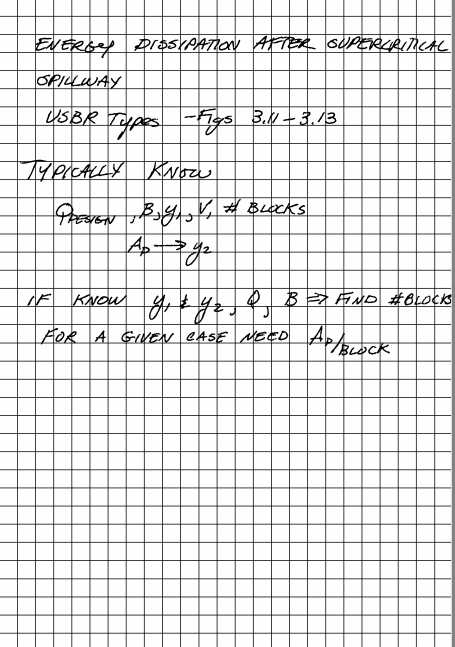 ENERGY DISSIPATION AFTER SUPERCRITICAL
SPILLWAY
USBR Types - Figs 3.11 - 3.13
TYPICALLY KNOW
QDESIGN, B, y1, V1 # BLOCKS
AD → y2
IF KNOW y1 & y2, Q, B ⇒ FIND # BLOCKS
FOR A GIVEN CASE NEED AD/BLOCK